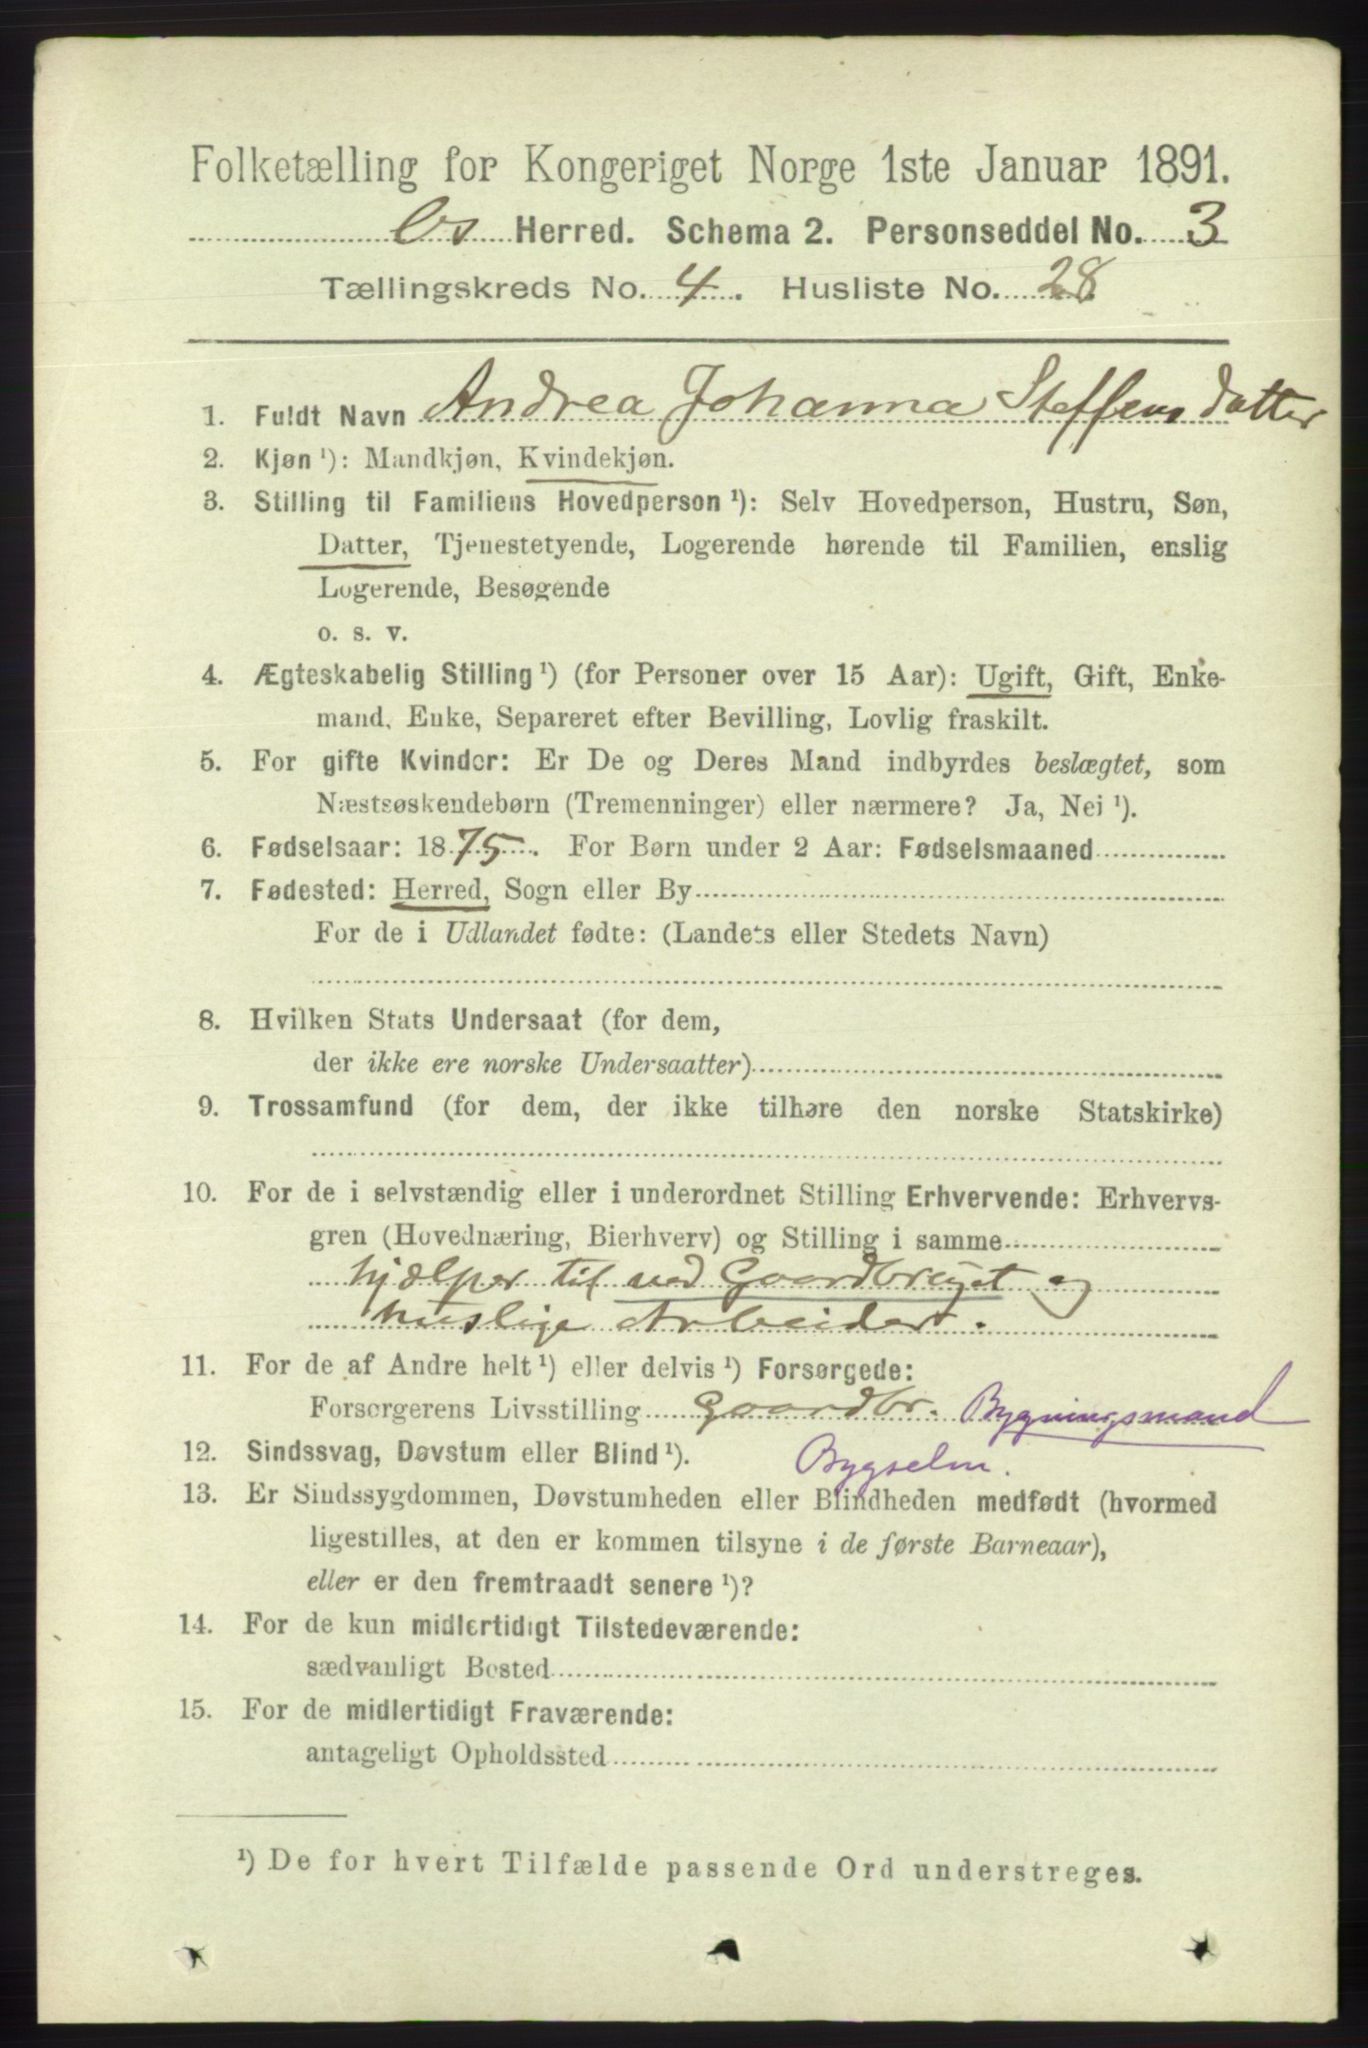 Folketælling for Kongeriget Norge 1ste Januar 1891.
Os Herred. Schema 2. Personseddel No. 3
Tællingskreds No. 4. Husliste No. 28
1. Fuldt Navn Andrea Johanna Steffensdatter
2. Kjøn ¹): Mandkjøn, Kvindekjøn.
3. Stilling til Familiens Hovedperson ¹): Selv Hovedperson, Hustru, Søn,
Datter, Tjenestetyende, Logerende hørende til Familien, enslig
Logerende, Besøgende
o. s. v.
4. Ægteskabelig Stilling ¹) (for Personer over 15 Aar): Ugift, Gift, Enke-
mand, Enke, Separeret efter Bevilling, Lovlig fraskilt.
5. For gifte Kvinder: Er De og Deres Mand indbyrdes beslægtet, som
Næstsøskendebørn (Tremenninger) eller nærmere? Ja, Nei ¹).
6. Fødselsaar: 1875. For Børn under 2 Aar: Fødselsmaaned
7. Fødested: Herred, Sogn eller By
For de i Udlandet fødte: (Landets eller Stedets Navn)
8. Hvilken Stats Undersaat (for dem,
der ikke ere norske Undersaatter)
9. Trossamfund (for dem, der ikke tilhøre den norske Statskirke)
10. For de i selvstændig eller i underordnet Stilling Erhvervende: Erhvervs-
gren (Hovednæring, Bierhverv) og Stilling i samme
hjælper til ved Gaardbruget og
huslige Arbeider.
11. For de af Andre helt ¹) eller delvis ¹) Forsørgede:
Forsørgerens Livsstilling Gaardbr. Bygningsmand
12. Sindssvag, Døvstum eller Blind ¹). Bygselm.
13. Er Sindssygdommen, Døvstumheden eller Blindheden medfødt (hvormed
ligestilles, at den er kommen tilsyne i de første Barneaar),
eller er den fremtraadt senere ¹)?
14. For de kun midlertidigt Tilstedeværende:
sædvanligt Bosted
15. For de midlertidigt Fraværende:
antageligt Opholdssted
¹) De for hvert Tilfælde passende Ord understreges.